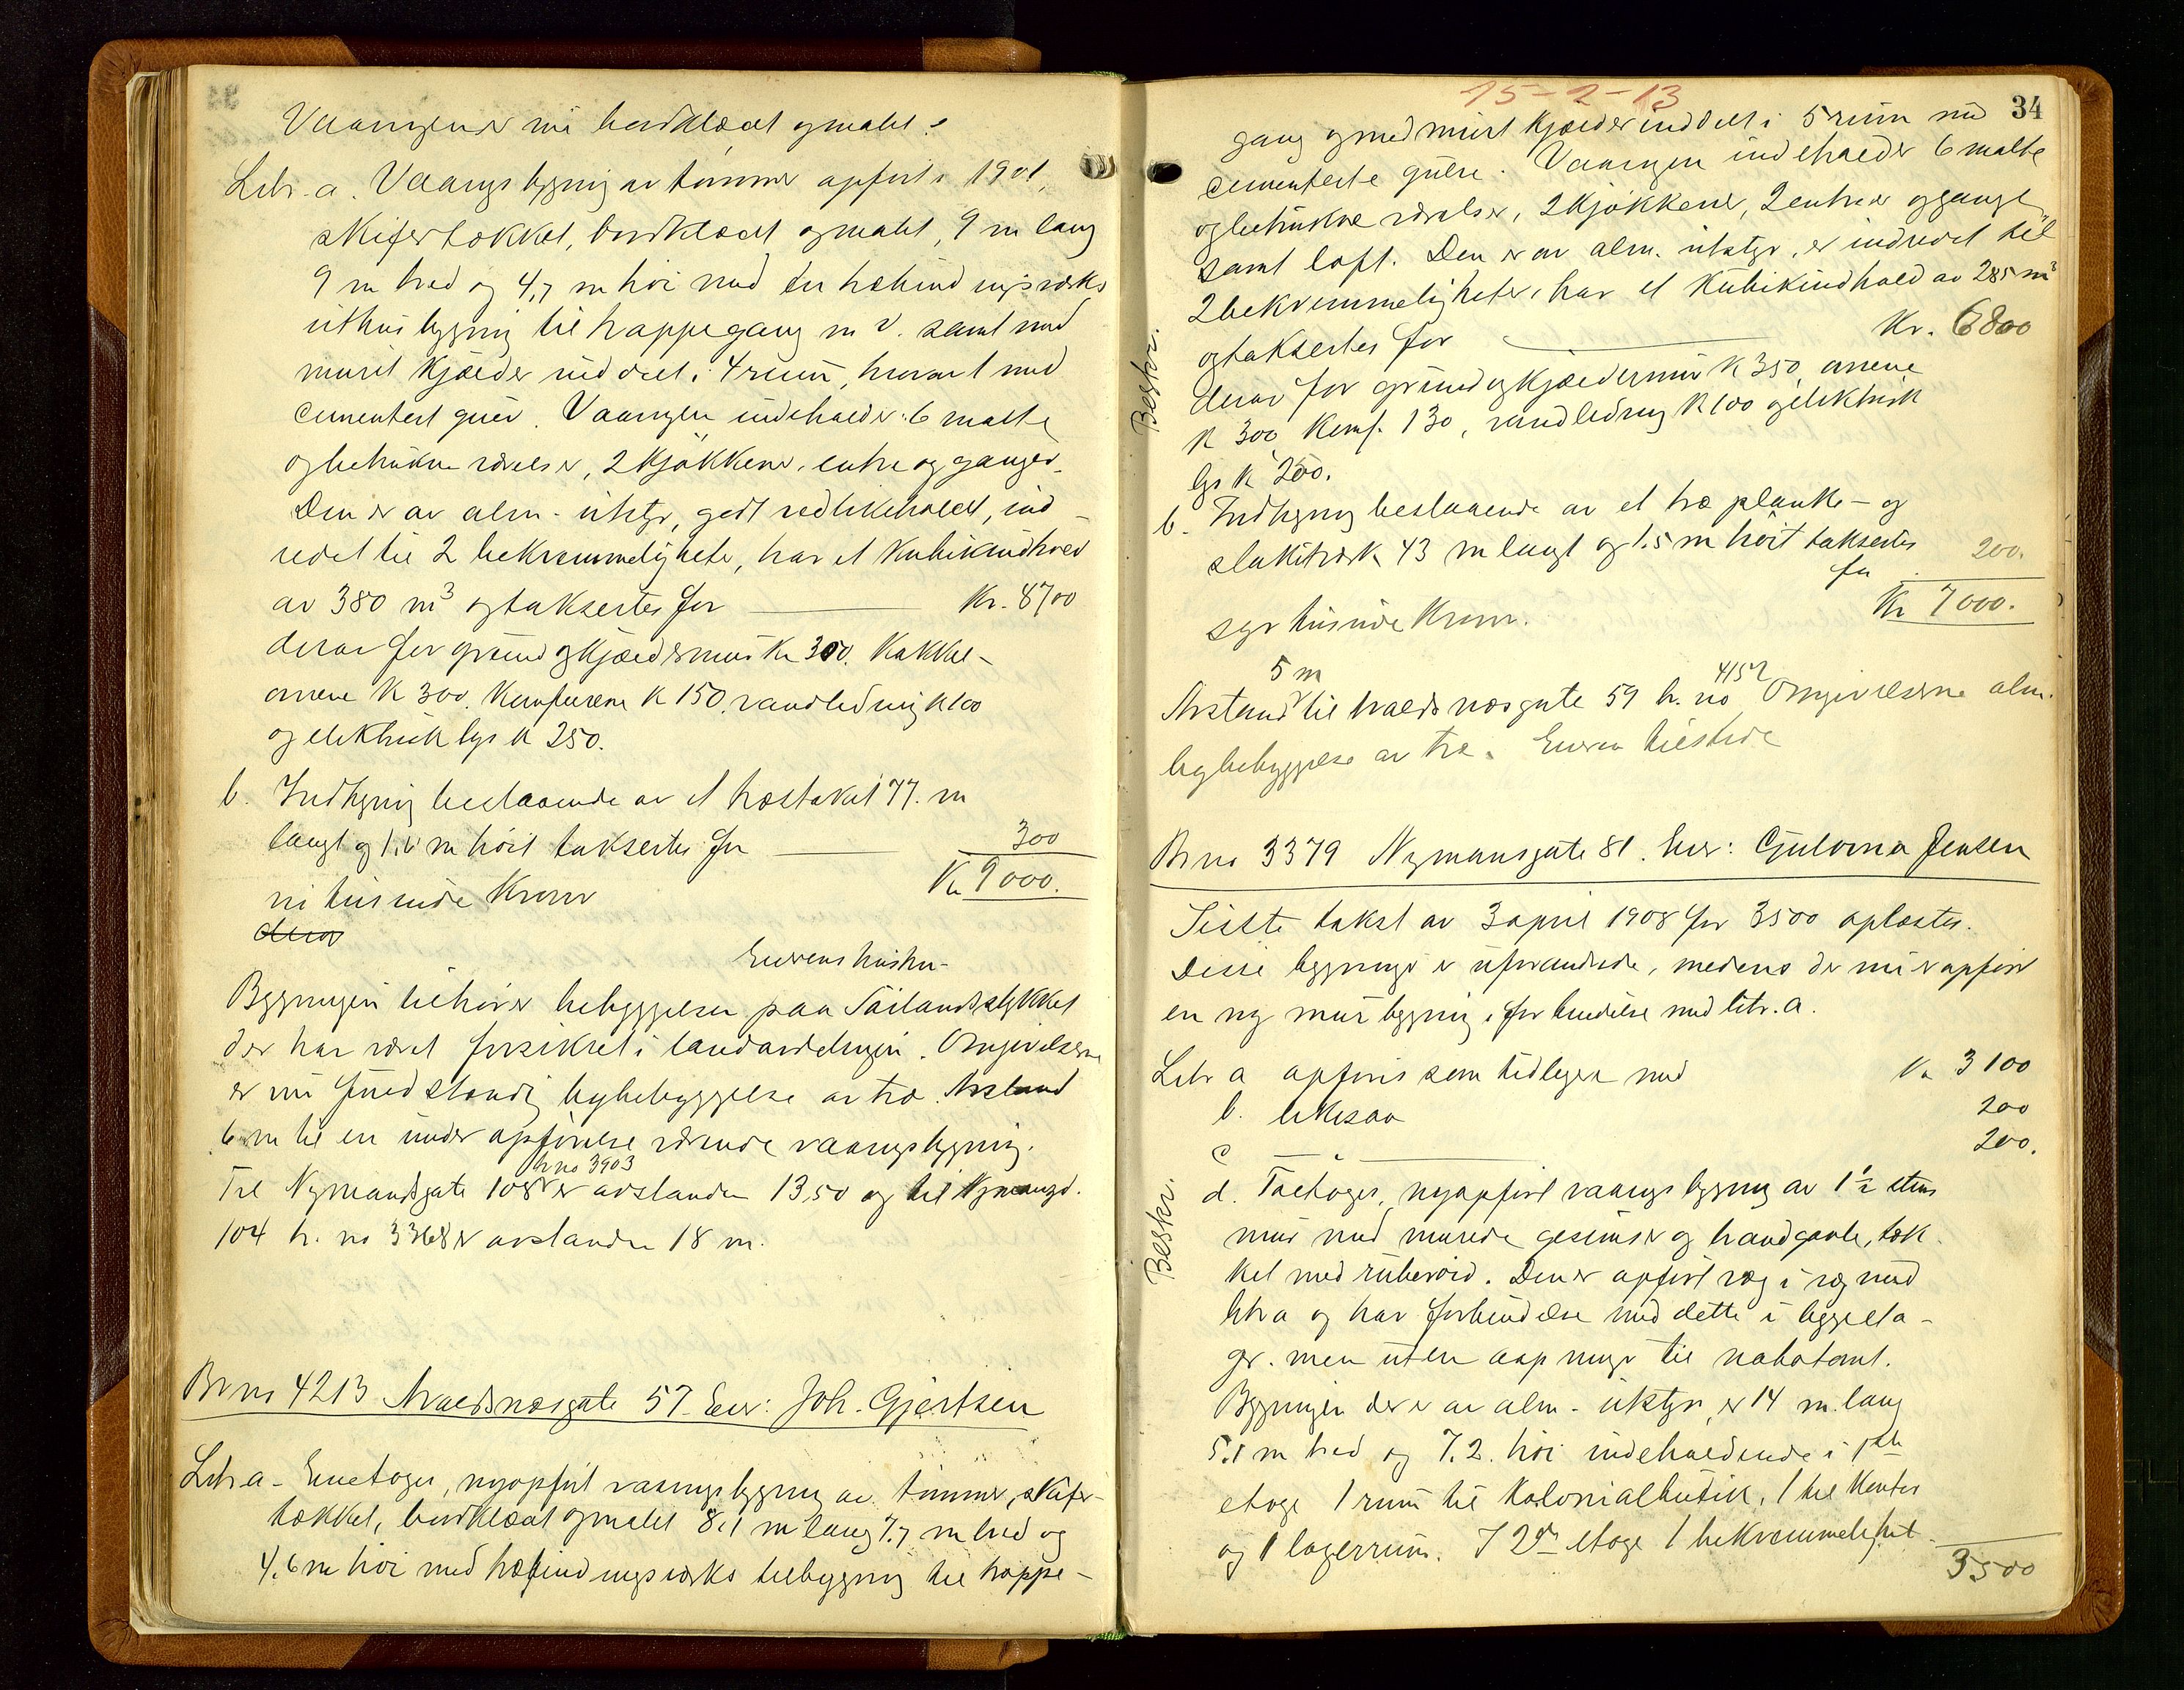 Vaaningen er nu bordklædt og malet.
Litr. a. Vaaningsbygning av tømmer opført i 1901,
skifertækket, bordklædt og malet, 9 m lang
9 m bred og 4,7 m høi med en træbindingsverks
uthusbygning til trappegang m v. samt med
muret kjælder inddelt i 4 rum, hvorav 1 med
cementert gulv. Vaaningen indeholder: 6 malte
og betrukne værelser, 2 kjøkkener, entre og ganger.
Den er av alm. utstyr, godt vedlikeholdt, ind-
redet til 2 bekvemmeligheter, har et kubikindhold
av 380 m³ og taksertes for Kr. 8700
derav for grund og kjældermur Kr 300. Kakkel-
ovnene K 300. Komfurene K 150, vandledning K 100
og elektrisk lys K 250.
b. Indhegning bestaaende av et træstaket 77. m
langt og 1,6 m høit taksertes for 300
Kr 9000.
ni tusinde Kroner
derav
Eierens hustru
Bygningen tilhører bebyggelsen paa Sailandstykket
der har været forsikret i landavdelingen. Omgivelserne
er nu fuldstændig bybebyggelse av træ. Avstand
6 m til en under opførelse værende vaaningsbygning.
br no 3903
Til Nymandsgate 108 er avstanden 13,50 og til Nymansgt.
104 br. no 3368 er avstanden 18 m.
Br no 4213 Avaldsnæsgate 57 Eier: Joh. Gjertsen
Litr a - Enetages, nyopført vaaningsbygning av tømmer, skifer-
tækket, bordklædt og malet 8,1 m lang 7,7 m bred og
4,6 m høi med træbindingsverks tilbygning til trappe-
15-2-13
34
gang og med muret kjælder inddelt i 5 rum med
cementerte gulve. Vaaningen indeholder 6 malte
og betrukne værelser, 2 kjøkkener, 2 entreer og gange
samt loft. Den er av alm. utstyr, er indredet til
2 bekvemmeligheter, har et kubikindhold av 285 m³
og taksertes for Kr. 6800
Beskr.
derav for grund og kjældermur K 350, ovnene
K 300 Komf. 130, vandledning K 100 og elektrisk
lys K 200.
b. Indhegning bestaaende av et træ planke- og
stakitværk 43 m langt og 1.5 m høit taksertes
for 200.
Kr 7000.
syv tusinde Kroner.
5 m
4152
Avstand til Avaldsnæsgate 59 br. no Omgivelserne alm.
bybebyggelse av træ. Eieren tilstede
Br no 3379 Nymansgate 81. Eier: Gulovna Jensen
Siste takst av 3 april 1908 for 3500 oplæstes.
Disse bygninger er uforandrede, medens der nu er opført
en ny murbygning i forbindelse med litr. a.
Litr a opføres som tidligere med Kr 3100
b. likesaa 200
c — " — 200.
Beskr.
d. Toetages, nyopført vaaningsbygning av 1½ stens
mur med murede gesimser og brandgavle, tæk-
ket med ruberoid. Den er opført væg i væg med
litr a og har forbindelse med dette i begge eta-
ger. men uten aapninger til nabotomt.
Bygningen der er av alm. utstyr, er 14 m. lang
5.1 m bred og 7.2. høi indeholdende i 1ste
etage 1 rum til kolonialbutik, 1 til kontor
og 1 lagerrum. I 2den etage 1 bekvemmelighet
3500